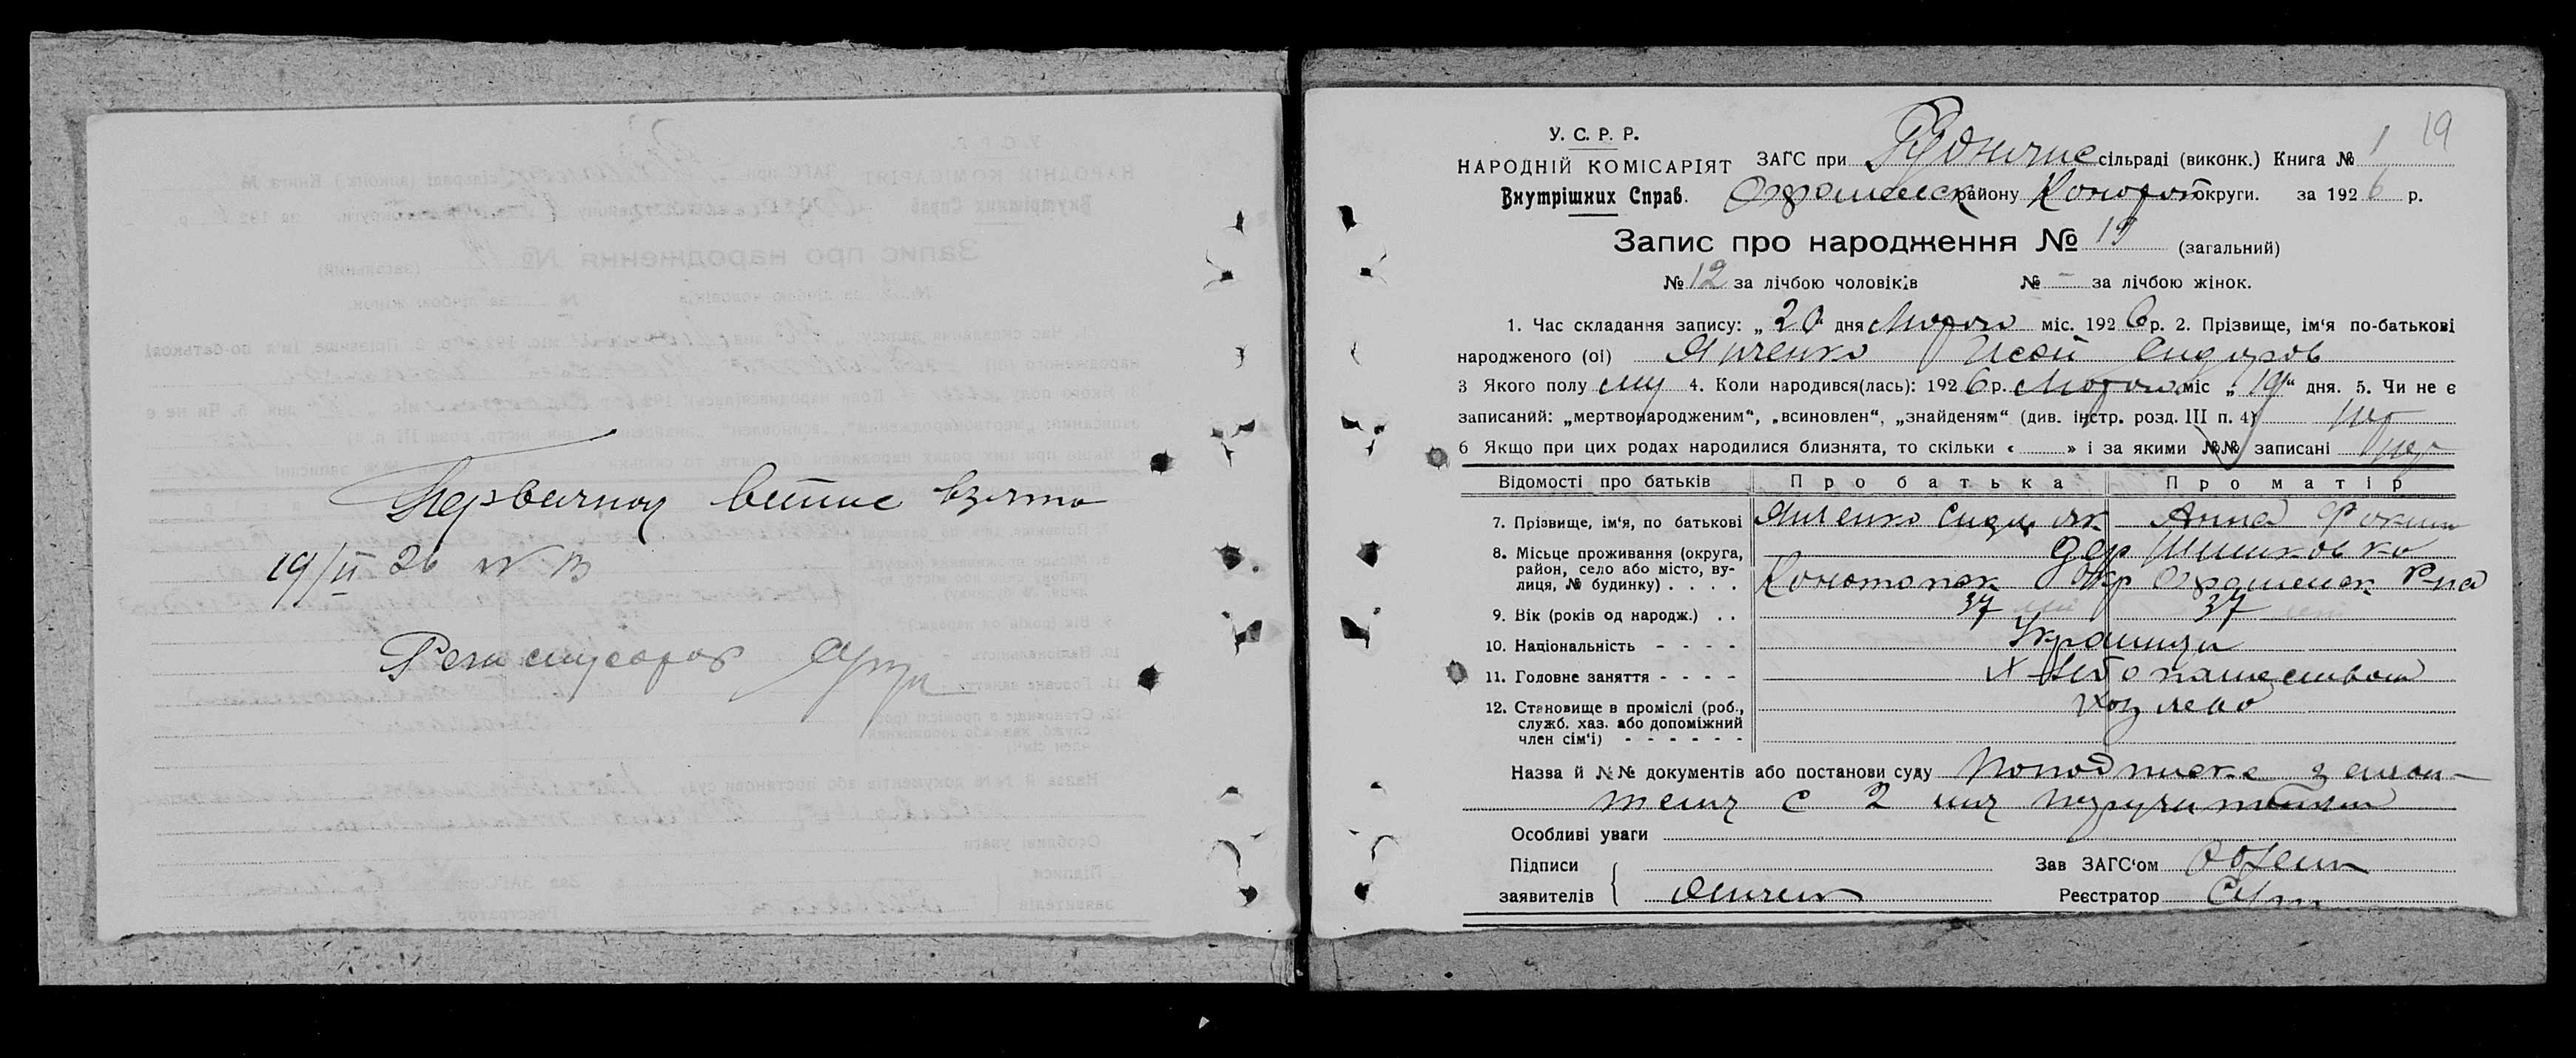 Первичная випис взята
19/II 26 N
Регистратор
19
У. С. Р. Р.
НАРОДНІЙ КОМІСАРІЯТ
Внутрішних Справ.
ЗАГС при сільраді (виконк.) Книга № 1
району Конотоп округи. за 1926 р.
Запис про народження № 19 (загальний)
№ 12 за лічбою чоловіків № – за лічбою жінок.
1. Час складання запису: „20“ дня Марта міс. 1926 р. 2. Прізвище, ім'я по-батькові
народженого (ої) Янченко Исай Сидоров
3 Якого полу муж 4. Коли народився(лась): 1926 р. Марта міс „19“ дня. 5. Чи не є
записаний: „мертвонародженим“, „всиновлен“, „знайденям“ (див. інстр. розд. III п. 4) нет
6 Якщо при цих родах народилися близнята, то скільки « » і за якими №№ записані нет
Відомості про батьків Про батька Про матір
7. Прізвище, ім'я, по батькові Янченко Сидор Анна Фокин
8. Місьце проживання (округа, район, село або місто, вулиця, № будинку) . . . . дер Шишковка
Конотопск Окр Р-на
9. Вік (років од народж.) . . 37 лет 37 лет
10. Національність - - - - Украинцы
11. Головне заняття - - - - Хлебопашеством
12. Становище в проміслі (роб., служб. хаз. або допоміжний член сім'ї) - - - - - - Хозяева
Назва й №№ документів або постанови суду По подписке заяви-
теля с 2 мя поручителями
Особливі уваги
Підписи
заявителів
Зав ЗАГС'ом
Реєстратор